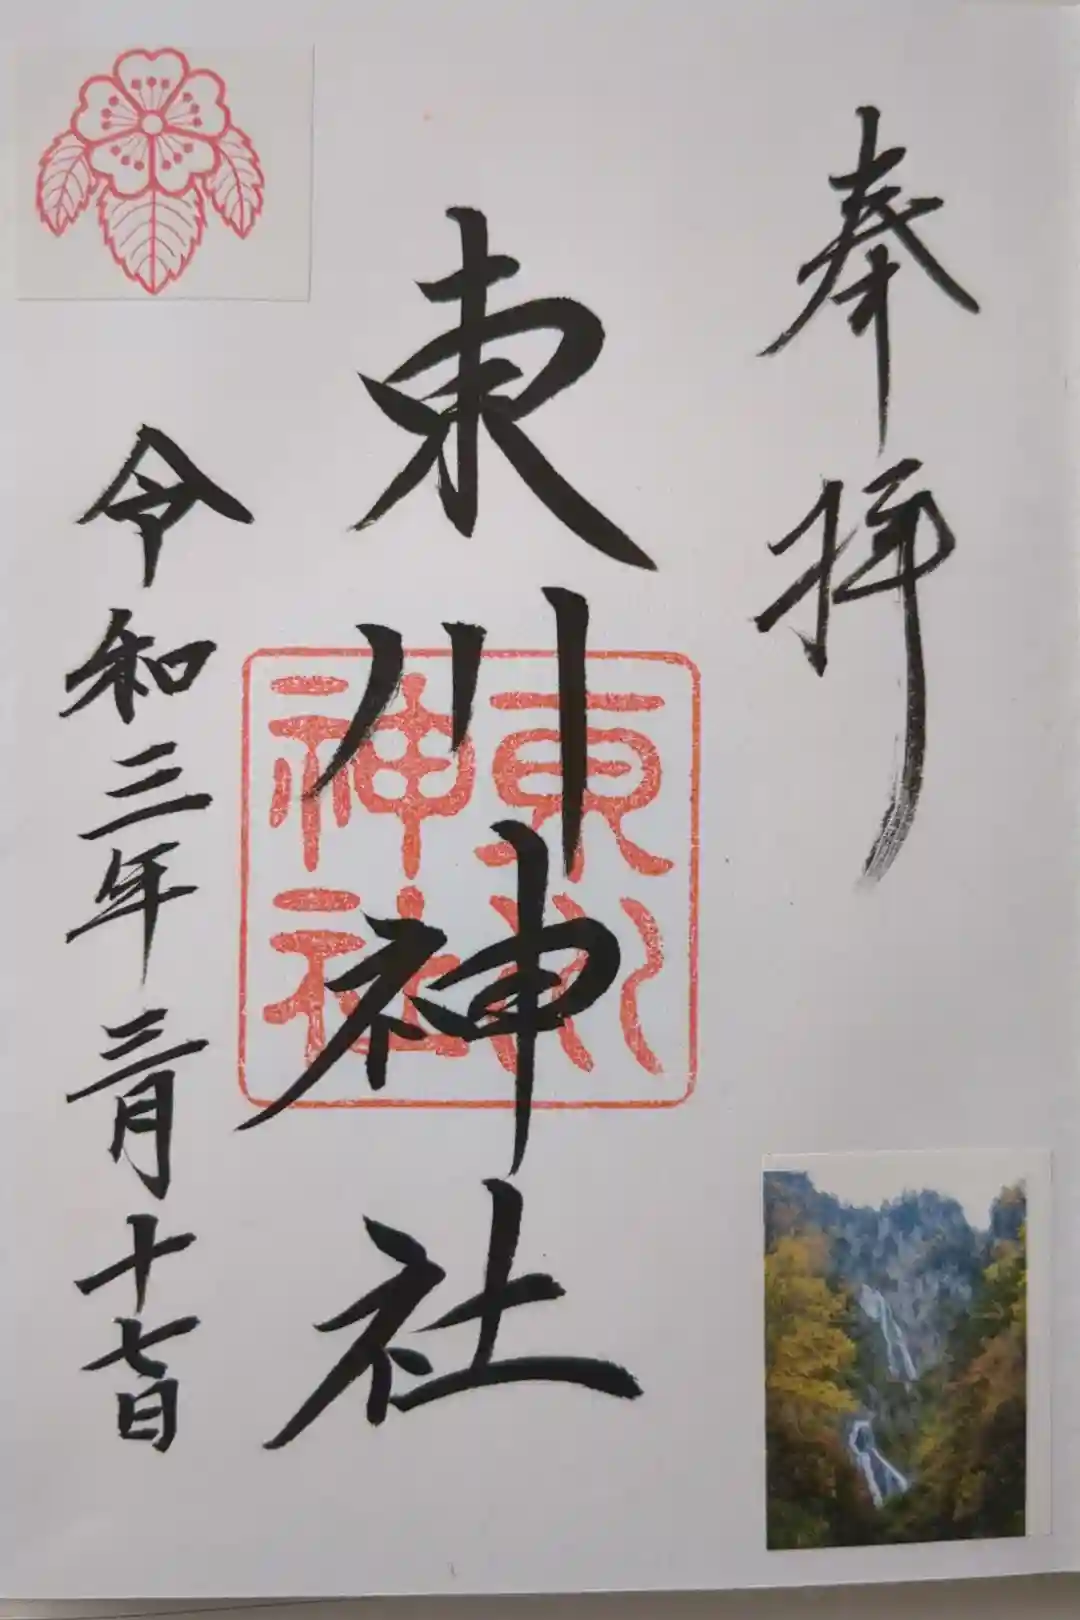 奉拝
東川神社
東川
神社
令和三年三月十七日